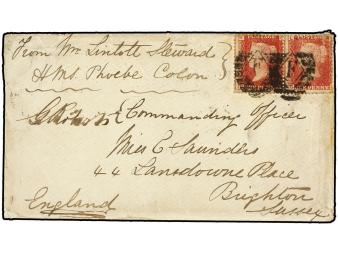 From Mr Lintott Steward
H.M.S. Phoebe Colon
Commanding Officer
Miss E Saunders
44 Lansdowne Place
Brighton
Sussex
England